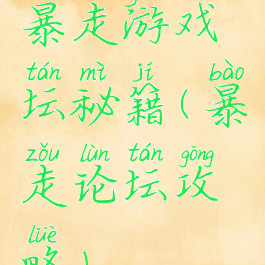 暴走游戏
tán mì jí bào
坛秘籍(暴
zǒu lùn tán gōng
走论坛攻
lüè
略)